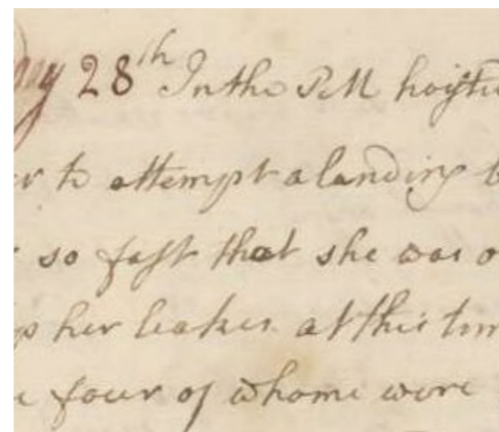 day 28th In the PM hoisted
to attempt a landing
so fast that she was
her leakes at this tim
four of whome were